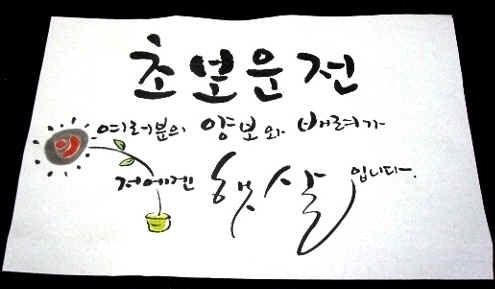 초보운전
여러분의 양보와 배려가
저에겐 햇살 입니다.